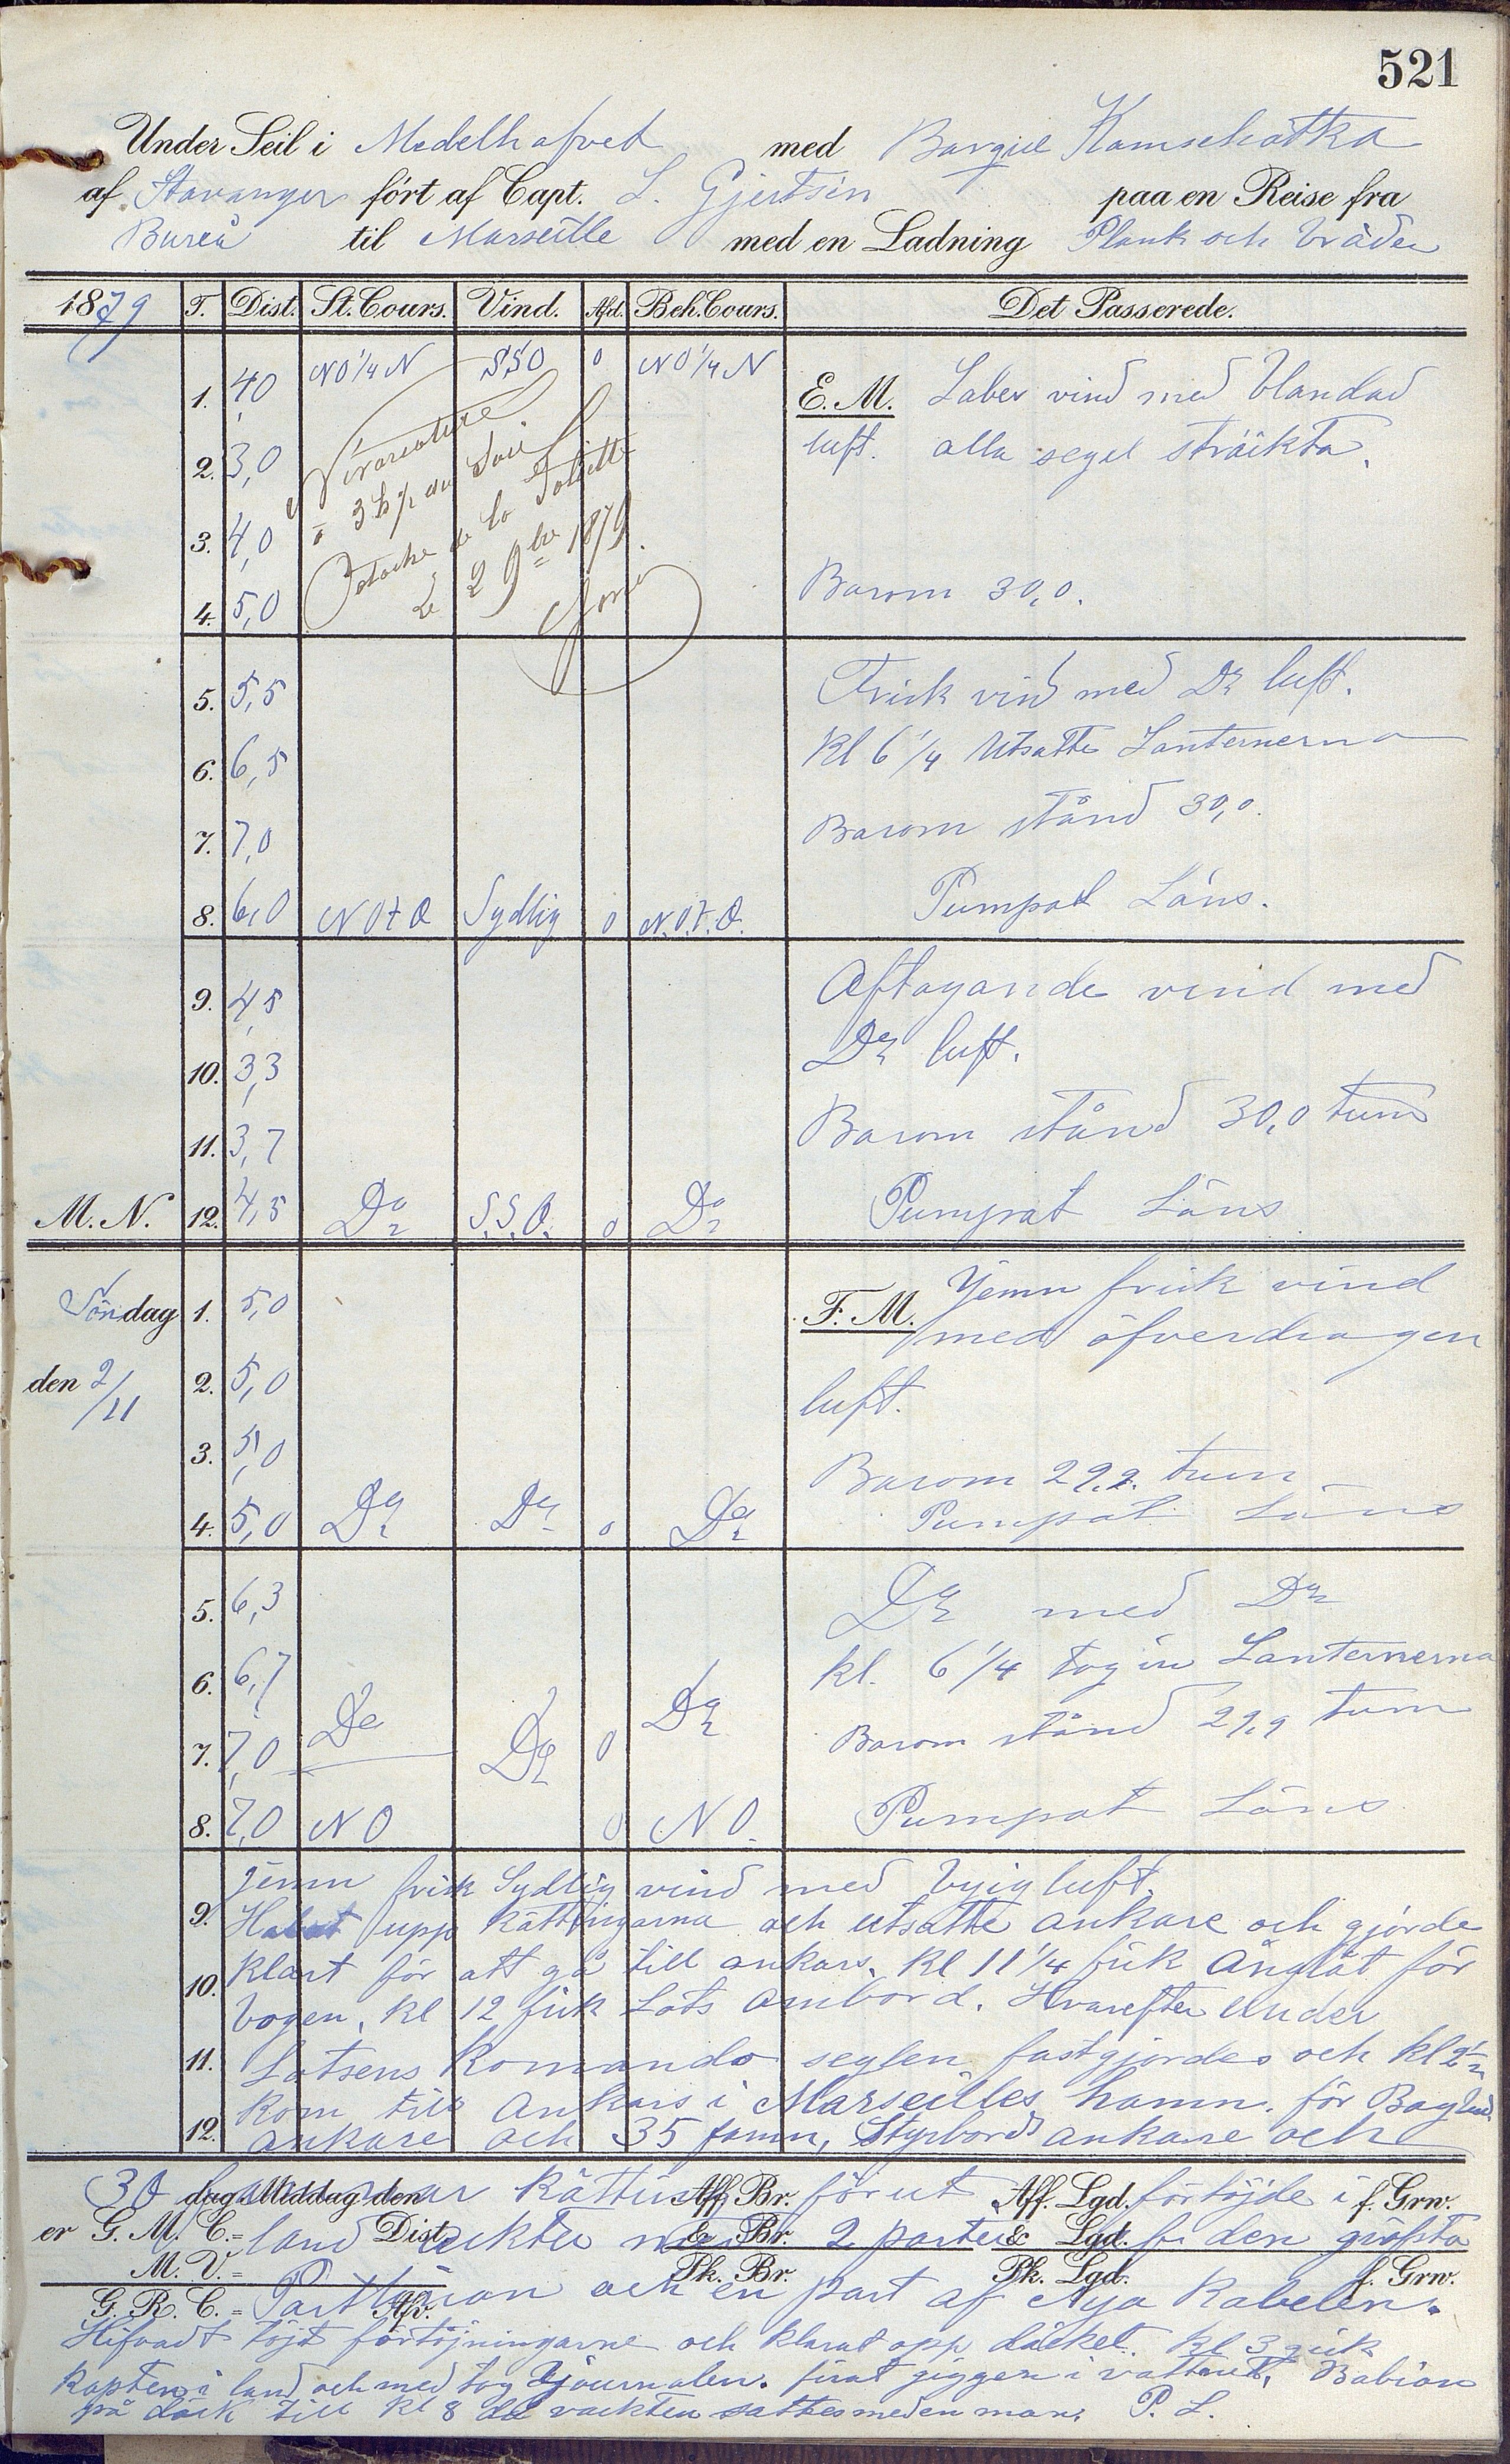 521
Under Seil i Medelhafvet med Barque Kamschatka
af Stavanger ført af Capt. L. Gjertsen paa en Reise fra
Bureå til Marseille med en Ladning Plank och bräder
1879 T. Dist. St. Cours. Vind. Afd. Beh. Cours. Det Passerede.
1. 4,0 NO 1/4 N SSO 0 NO 1/4 N E. M. Laber vind med blandad
2. 3,0 luft. alla segel sträckta.
3. 4,0
4. 5,0 Barom 30,0.
à 3 h 1/2 du Soir
de la Joliette
Le 2 9bre 1879.
5. 5,5 Frisk vind med Do luft.
6. 6,5 Kl 6 1/4 Utsatte Lanternerna
7. 7,0 Barom stånd 30,0.
8. 6,0 NOtO Sydlig 0 N.O.t.O. Pumpat Läns.
9. 4,5 Aftagande vind med
10. 3,3 Do luft.
11. 3,7 Barom stånd 30,0 tum
M. N. 12. 4,5 Do S.S.O. 0 Do Pumpat Läns
Söndag 1. 5,0 F. M. Jemn frisk vind
med öfverdragen
den 2/11 2. 5,0 luft.
3. 5,0 Barom 29,9. tum
4. 5,0 Do Do 0 Do Pumpat Läns
5. 6,3 Do med Do
6. 6,7 Kl. 6 1/4 tog in Lanternerna
7. 7,0 Do Do 0 Do Barom stånd 29,9 tum
8. 7,0 NO 0 NO. Pumpat Läns
jemn frisk Sydlig vind med byig luft.
9. Halat upp Kättingarna och utsatte ankare och gjorde
10. Klart för att gå till ankars. Kl 11 1/4 fick Ångbåt för
bogen. Kl 12 fick Lots ombord. Hvarefter under
11. Lotsens Komando seglen fastgjordes och Kl 2 1/2
Kom till Ankars i Marseilles hamn. för Bagbord
12. ankare och 35 famn, Styrbords ankare och
30 famnar Kätting förut förtöjde i
dag Middag den Aff. Br. Aff. Lgd. f. Grw.
er G. M. C. = Dist. & Br. & Lgd.
land akter med 2 parter af den grofsta
M. V. = Pk. Br. Pk. Lgd. f. Grw.
G. R. C. = Afv.
och en part af Nya Kabelen.
töjt förtöjningarne och klarat opp däcket. Kl 3 gick
Kapten i land och med tog Djournalen. firat giggen i vattnet, Babian
på däck till Kl 8 då vackten sattes med en man. P. L.